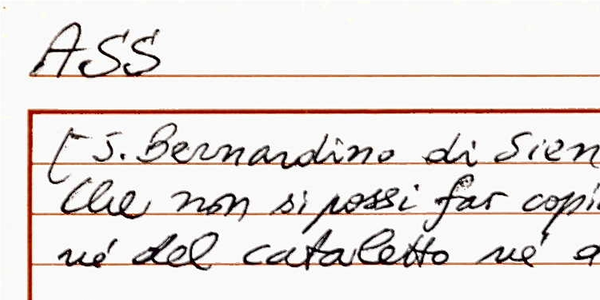 ASS
[S. Bernardino di Sien
Che non si possi far copi
né del cataletto né a